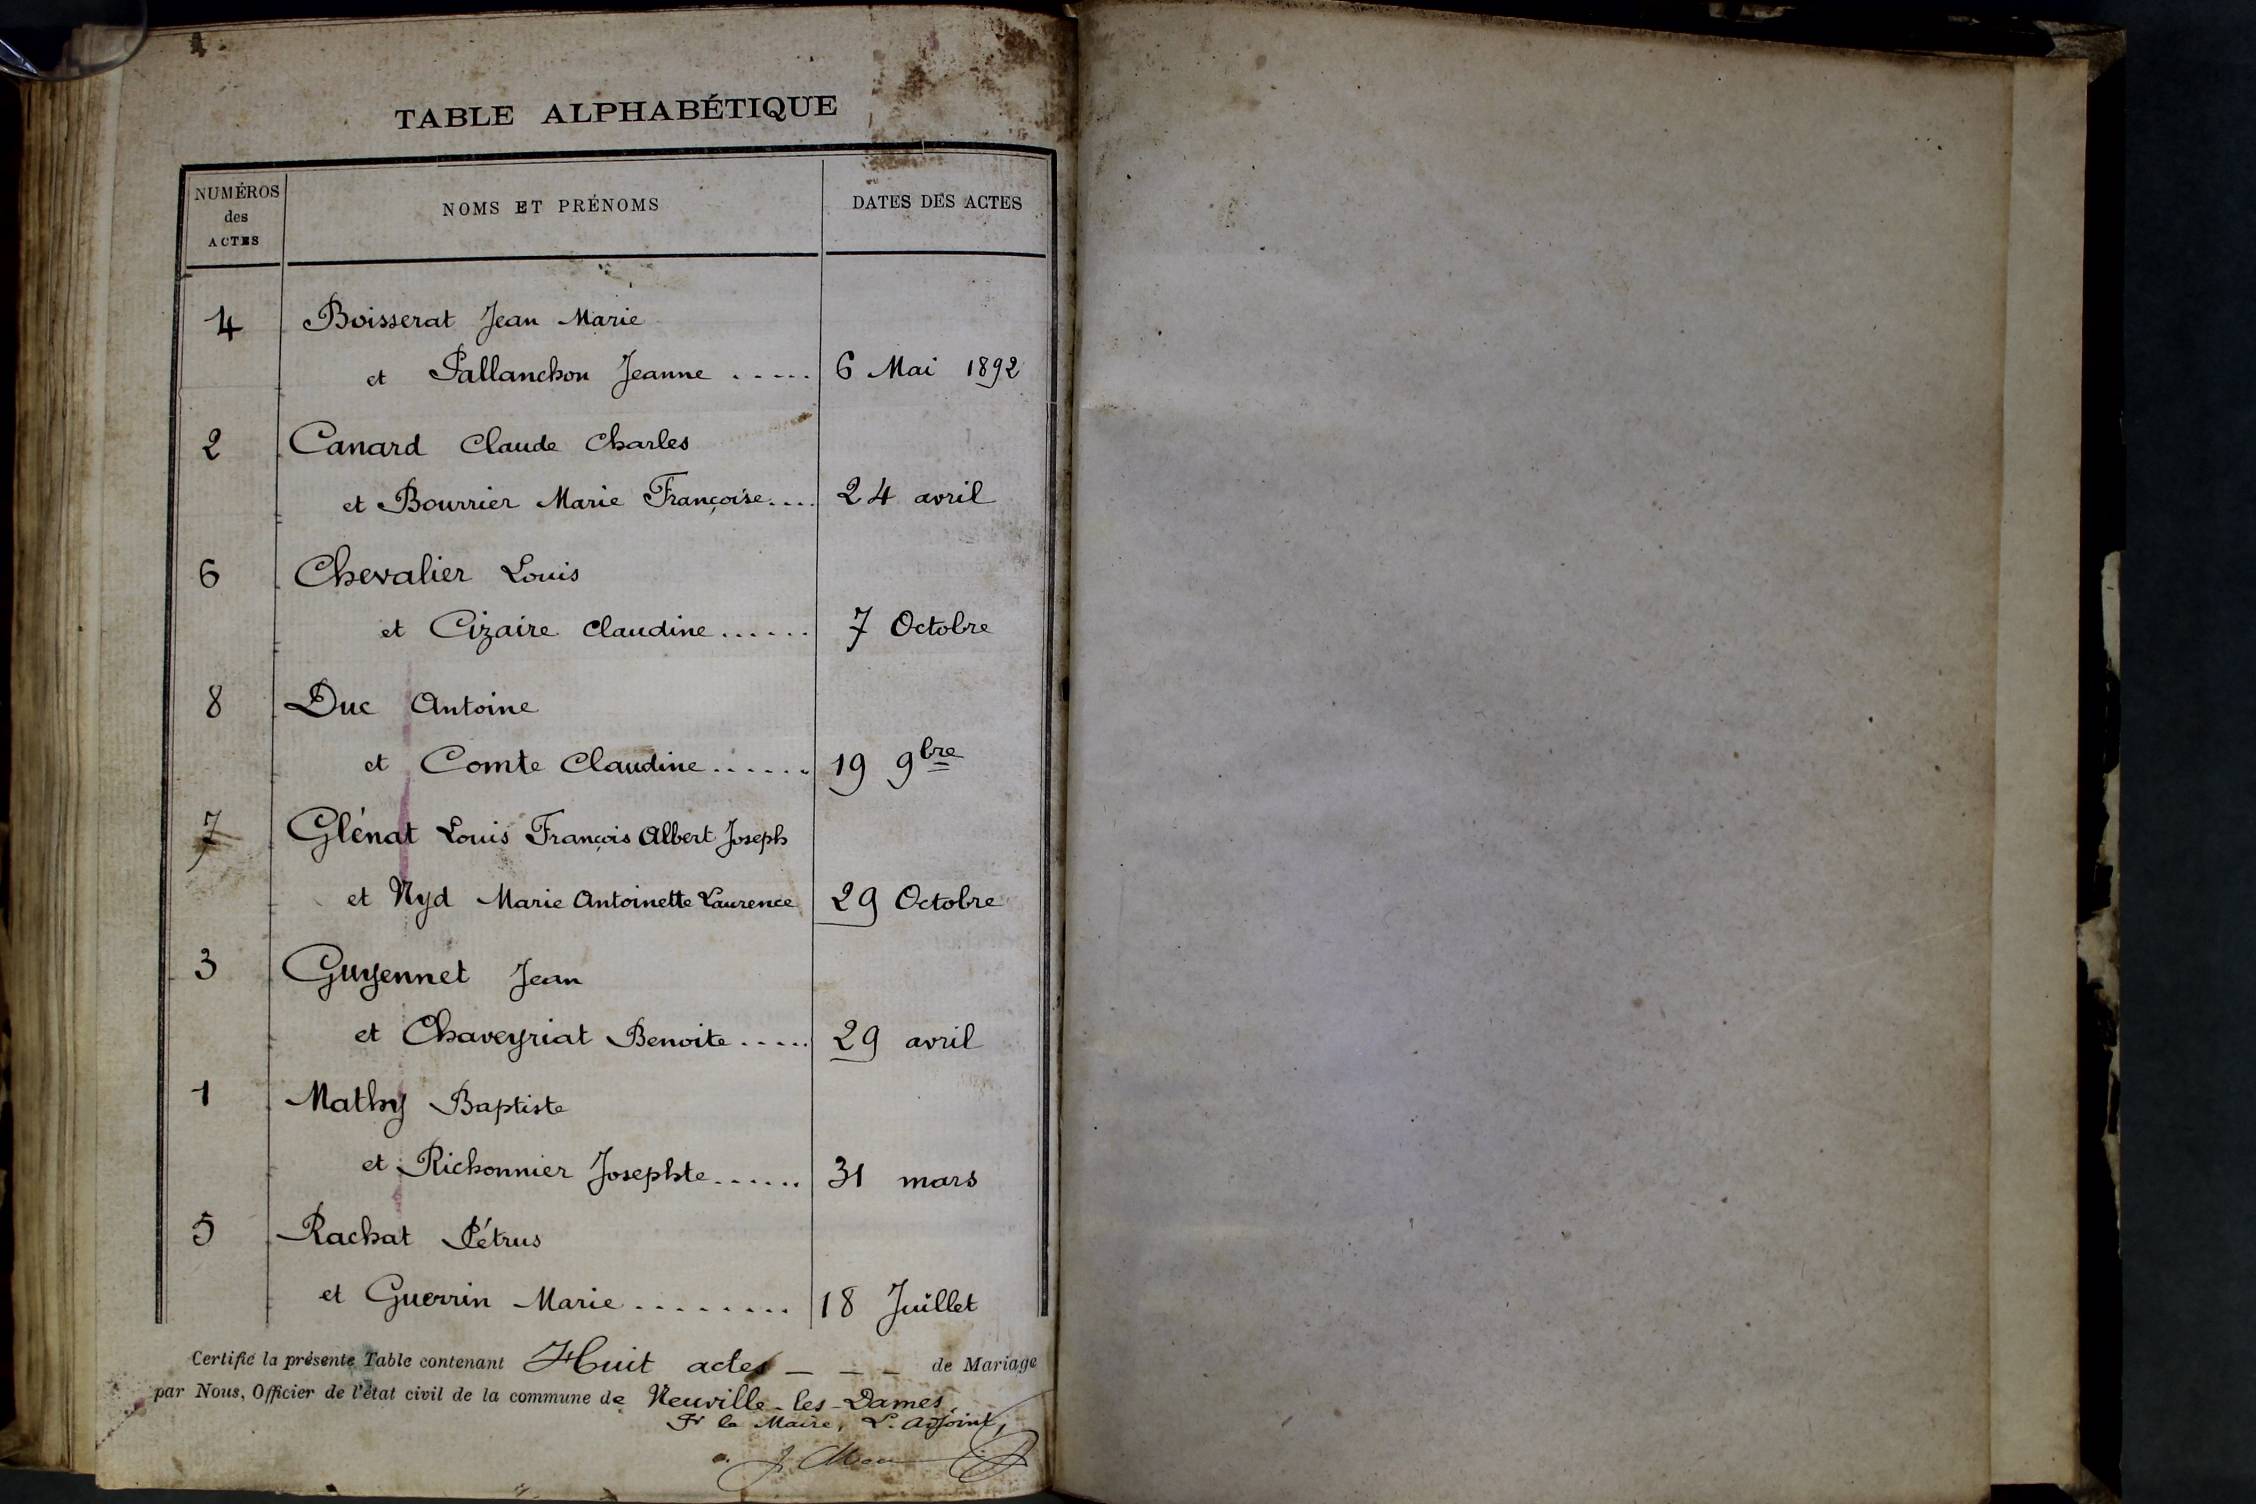 TABLE ALPHABÉTIQUE
NUMÉROS
des
ACTES
NOMS ET PRÉNOMS
DATES DES ACTES
4 Boisserat Jean Marie
et Pallanchon Jeanne ..... 6 Mai 1892
2 Canard Claude Charles
et Bourrier Marie Françoise.... 24 avril
6 Chevalier Louis
et Cizaire Claudine ...... 7 Octobre
8 Duc Antoine
et Comte Claudine ...... 19 9bre
7 Glénat Louis François Albert Joseph
et Nyd Marie Antoinette Laurence 29 Octobre
3 Guyennet Jean
et Chaveyriat Benoite ..... 29 avril
1 Mathy Baptiste
et Richonnier Josephte ...... 31 mars
5 Rachat Pétrus
et Guerrin Marie ........ 18 Juillet
Certifié la présente Table contenant Huit actes _ _ _ _ de Mariage
par Nous, Officier de l'état civil de la commune de Neuville-les-Dames,
Pr le Maire, L'adjoint,